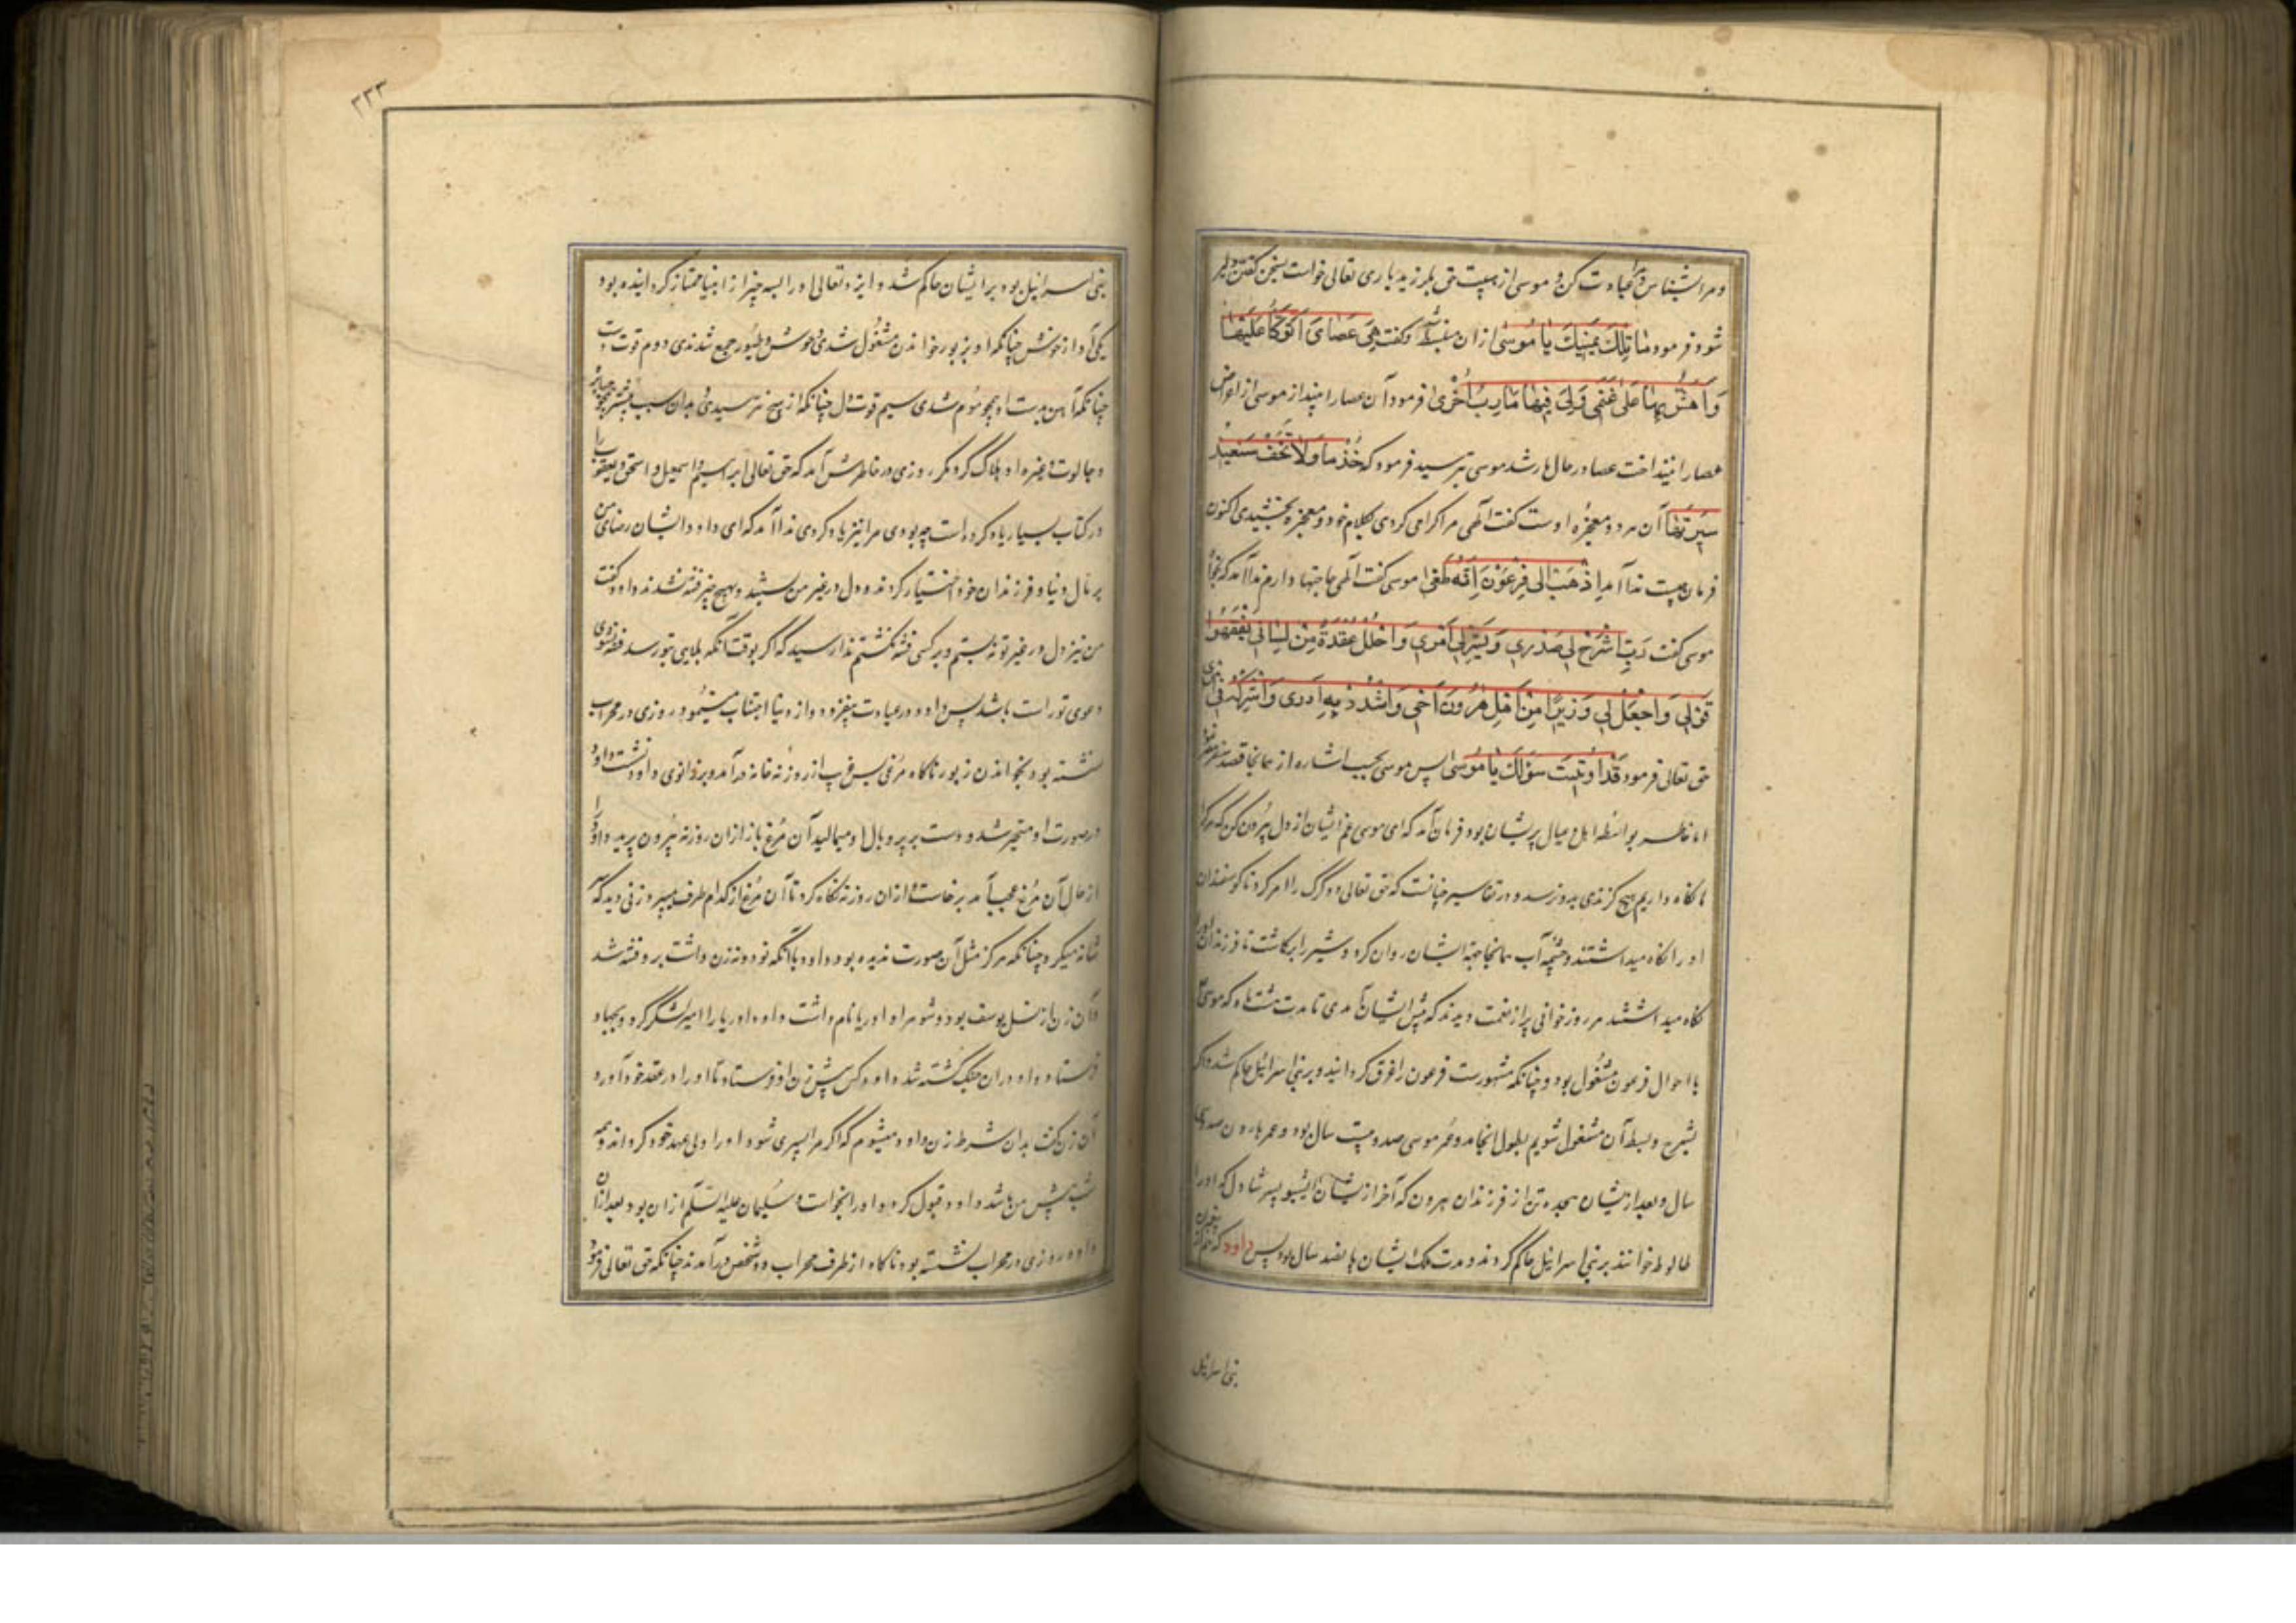 و مرا بشناس و مرا عبادت کن و موسی از هیبت حق بلرزید باری تعالی خواست بسخن گفتن دلیر
شود فرمود مَا تِلْكَ بِيَمِينِكَ يَا مُوسَىٰ ازان منبسط شد و گفت هِيَ عَصَايَ أَتَوَكَّأُ عَلَيْهَا
وَأَهُشُّ بِهَا عَلَىٰ غَنَمِي وَلِيَ فِيهَا مَآرِبُ أُخْرَىٰ فرمود آن عصا را بینداز موسی از اعراض
عصا را بینداخت عصا در حال مار شد موسی بترسید فرمود که خُذْهَا وَلَا تَخَفْ سَنُعِيدُ
سِيرَتَهَا آن هر دو معجزه اوست گفت الهی مرا گرامی کردی بکلام خود و معجزه بخشیدی اکنون
فرمان چیست ندا آمد اِذْهَبْ إِلَىٰ فِرْعَوْنَ إِنَّهُ طَغَىٰ موسی گفت الهی حاجتها دارم ندا آمد که بخواه
موسی گفت رَبِّ اشْرَحْ لِي صَدْرِي وَيَسِّرْ لِي أَمْرِي وَاحْلُلْ عُقْدَةً مِنْ لِسَانِي يَفْقَهُوا
قَوْلِي وَاجْعَلْ لِي وَزِيرًا مِنْ أَهْلِي هَرُونَ أَخِي وَاشْدُدْ بِهِ أَزْرِي وَأَشْرِكْهُ فِي أَمْرِي
حق تعالی فرمود قَدْ أُوتِيتَ سُؤْلَكَ يَا مُوسَىٰ پس موسی بحسب اشاره از همانجا قصد سفر مصر نمود
اما خاطر بواسطه اهل و عیال پریشان بود فرمان آمد که ای موسی غم ایشان از دل بیرون کن که هرکرا
ما نگاه داریم هیچ گزندی بدو نرسد و در تفاسیر چنانست که حق تعالی دو گرگ را امر کرد تا گوسفندان
او را نگاه میداشتند و چشمه آب همانجا جهة ایشان روان کرد و شیر را برگماشت تا فرزندان او را
نگاه میداشتند هر روز خوانی پر از نعمت دیدند که پیش ایشان آمدی تا مدت هشت ماه که موسی
با احوال فرعون مشغول بود و چنانکه مشهورست فرعون را غرق گردانید و بر بنی اسرائیل حاکم شد و اگر
بشرح و بسط آن مشغول شویم بطول انجامد و عمر موسی صد و بیست سال بود و عمر هارون صد و سی
سال و بعد از یشان هجده تن از فرزندان هرون که آخر ازیشان ایشبو پسر شاول که او را
طالوط خوانند بر بنی اسرائیل حاکم گردند و مدت ملک ایشان پانصد سال بود پس داود که هم از پیغمبران
بنی اسرائیل
۲۳۳
بنی اسرائیل بود بر ایشان حاکم شد و ایزد تعالی او را بسه چیز از انبیا ممتاز گردانیده بود
یکی آواز خوش چنانکه او بزبور خواندن مشغول شدی وحوش و طیور جمع شدندی دوم قوت دست
چنانکه آهن بدست او همچو موم شدی سیم قوت دل چنانکه از هیچ نترسیدی بدان سبب
و جالوت و غیره را هلاک کرد مگر روزی در خاطرش آمد که حق تعالی ابراهیم و اسمعیل و اسحق و یعقوب را
در کتاب بسیار یاد کرده است چه بودی مرا نیز یاد کردی ندا آمد که ای داود ایشان رضای من
بر مال دنیا و فرزندان خود اختیار کردند و دل در غیر من نبستند و بهیچ چیز فتنه نشدند داود گفت
من نیز دل در غیر تو نبستم و بر کسی فتنه نگشتم ندا رسید که اگر بوقت آنکه بلایی بتو رسد فتنه نشوی
دعوی تو راست باشد پس داود در عبادت بیفزود و از دنیا اجتناب مینمود روزی در محراب
نشسته بود بخواندن زبور ناگاه مرغی بس غریب از روزنه خانه در آمد و بر زانوی داود نشست داود
در صورت او متحیر شد و دست بر پر و بال او میمالید آن مرغ باز ازان روزنه بیرون پرید داود را
از حال آن مرغ عجب آمد برخاست و ازان روزنه نگاه کرد تا آن مرغ از کدام طرف میپرد زنی دید که
شانه میکرد چنانکه هرگز مثل آن صورت ندیده بود داود باآنکه نود و نه زن داشت برو فتنه شد
و آن زن از نسل یوسف بود و شوهر او اوریا نام داشت داود اوریا را امیر لشکر کرد و بجهاد
فرستاد و او در ان جنگ کشته شد داود کس پیش زن او فرستاد تا او را در عقد خود آورد
آن زن گفت بدان شرط زن داود میشوم که اگر مرا پسری شود او را ولی عهد خود گرداند و همه
شب پیش من باشد داود قبول کرد و او را بخواست و سلیمان علیه السلام ازان بود بعد ازان
داود روزی در محراب نشسته بود ناگاه از طرف محراب دو شخص در آمدند چنانکه حق تعالی فرمود